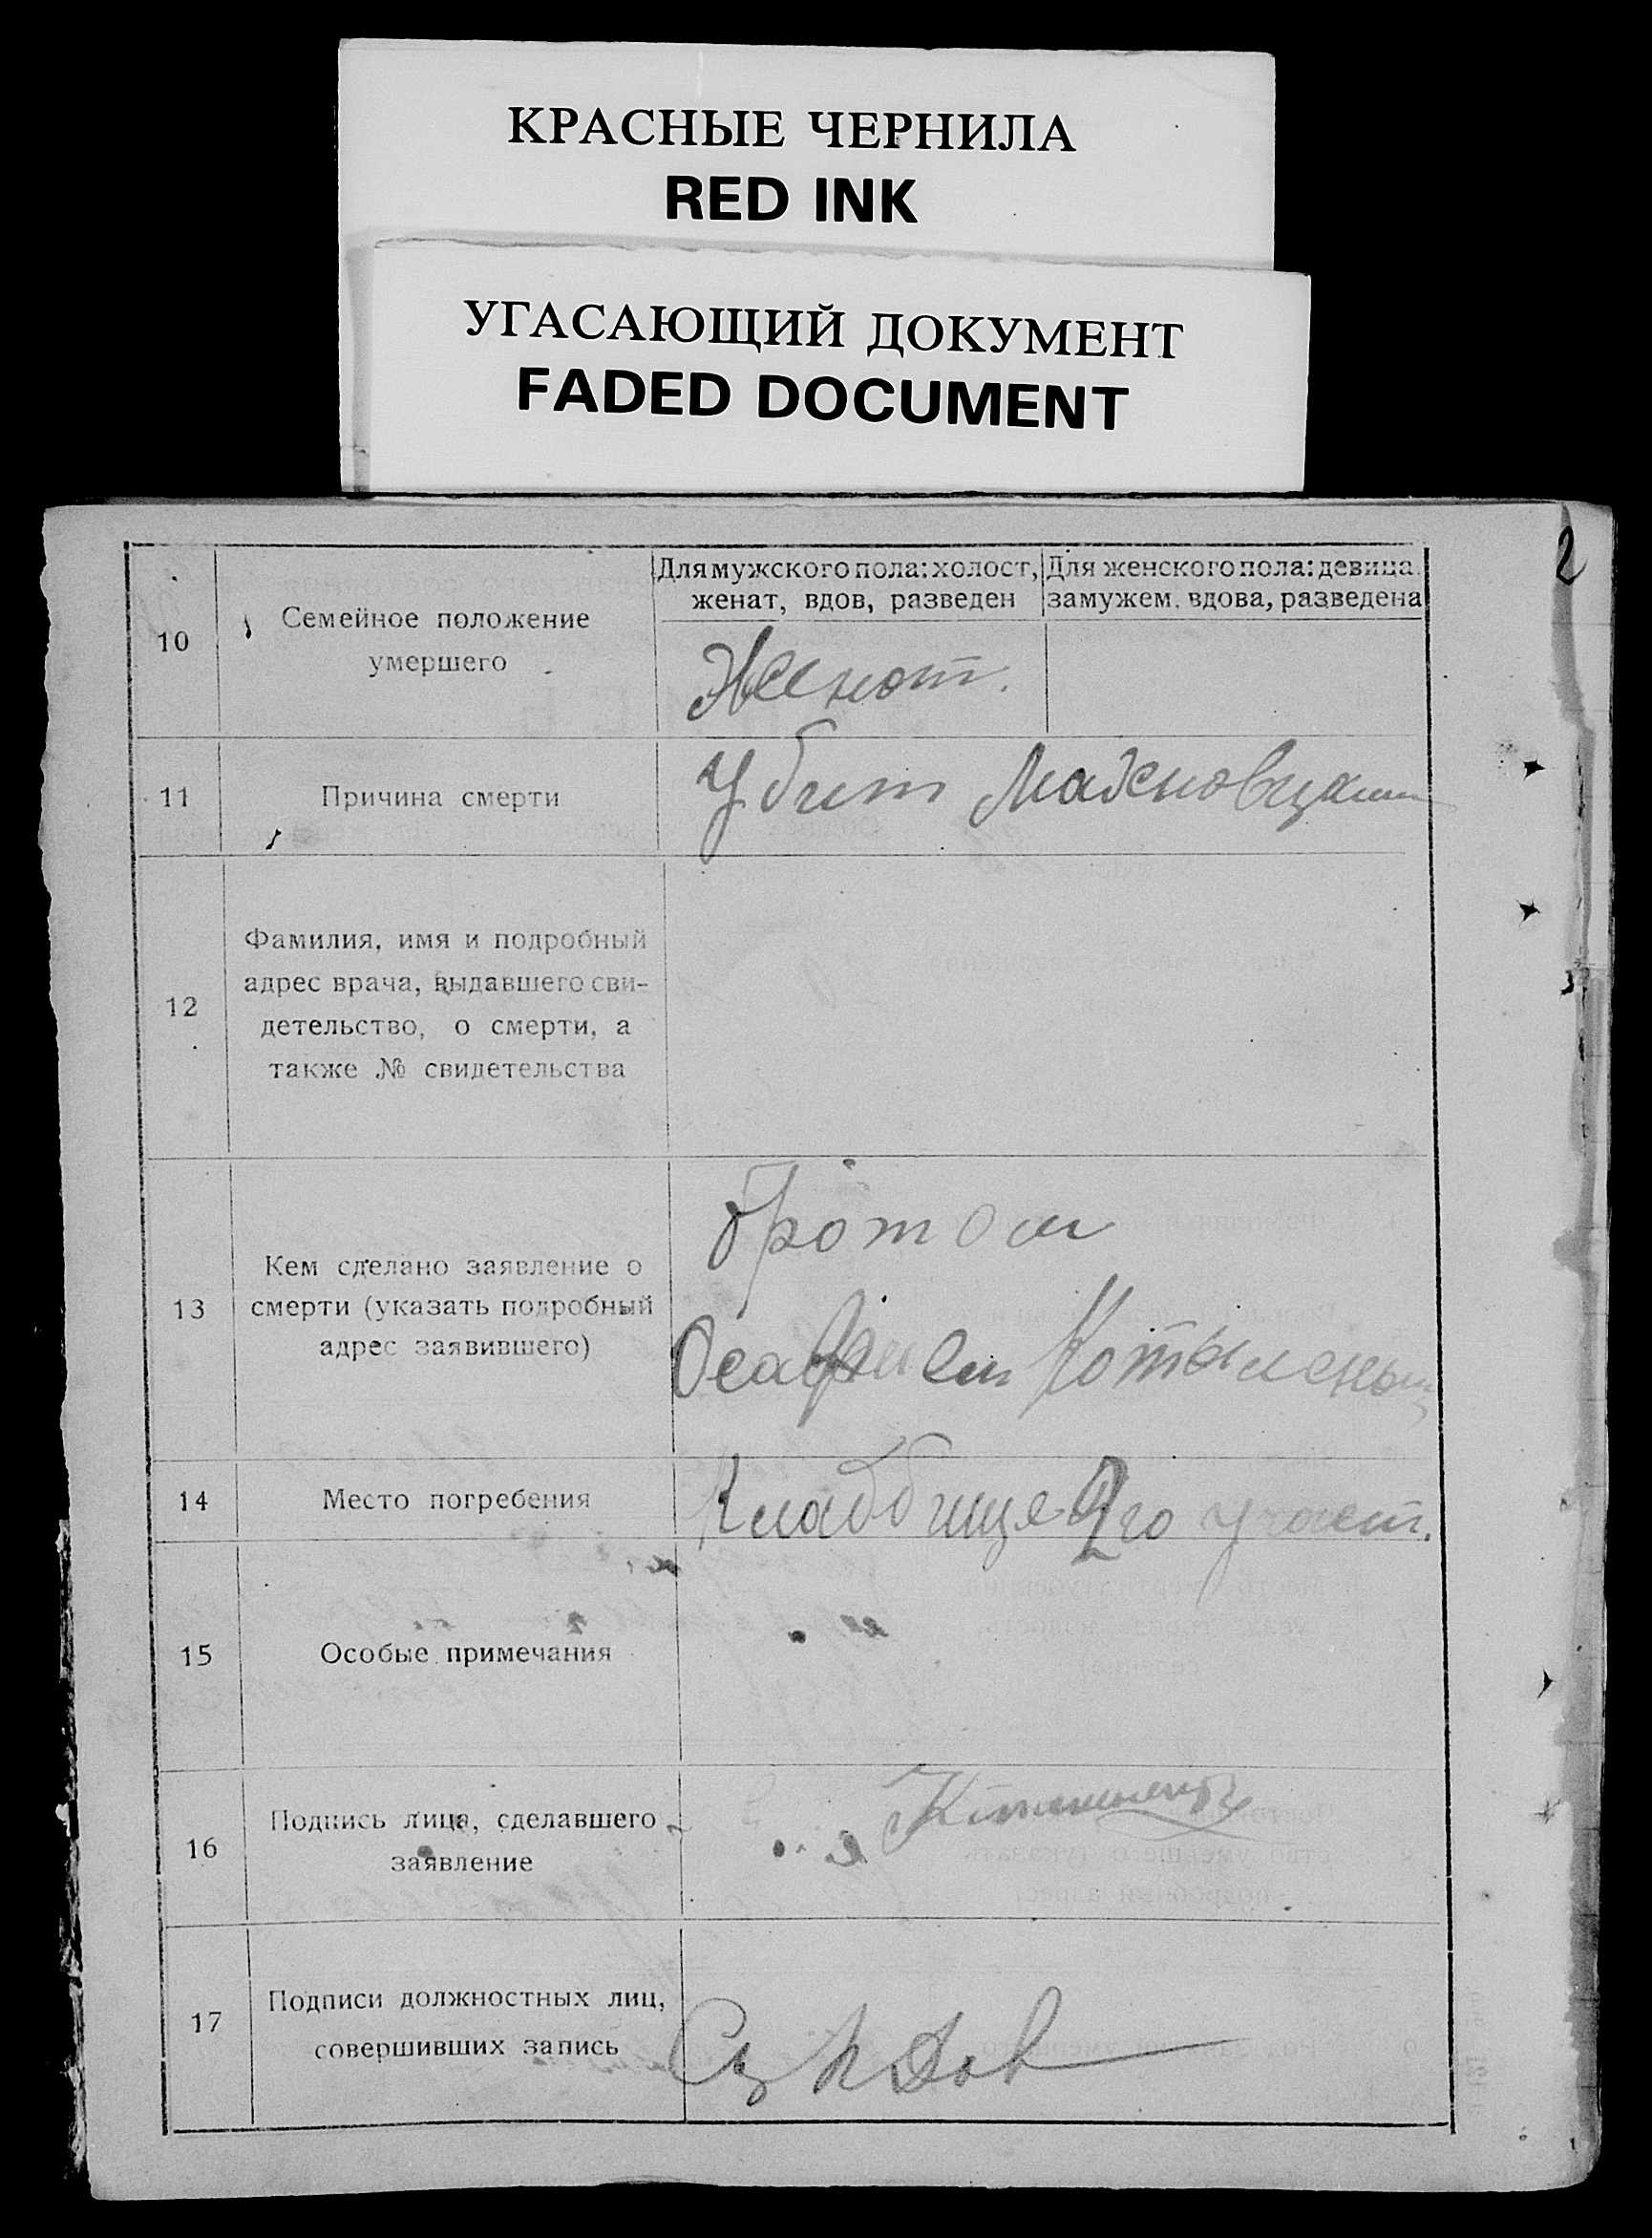 КРАСНЫЕ ЧЕРНИЛА
RED INK
УГАСАЮЩИЙ ДОКУМЕНТ
FADED DOCUMENT
2
10
Семейное положение
умершего
Для мужского пола: холост,
женат, вдов, разведен
Для женского пола: девица,
замужем, вдова, разведена
Женат.
11
Причина смерти
Убит Махновцами
12
Фамилия, имя и подробный
адрес врача, выдавшего сви-
детельство, о смерти, а
также № свидетельства
13
Кем сделано заявление о
смерти (указать подробный
адрес заявившего)
братом
14
Место погребения
Кладбище 2го участ.
15
Особые примечания
16
Подпись лица, сделавшего
заявление
17
Подписи должностных лиц,
совершивших запись